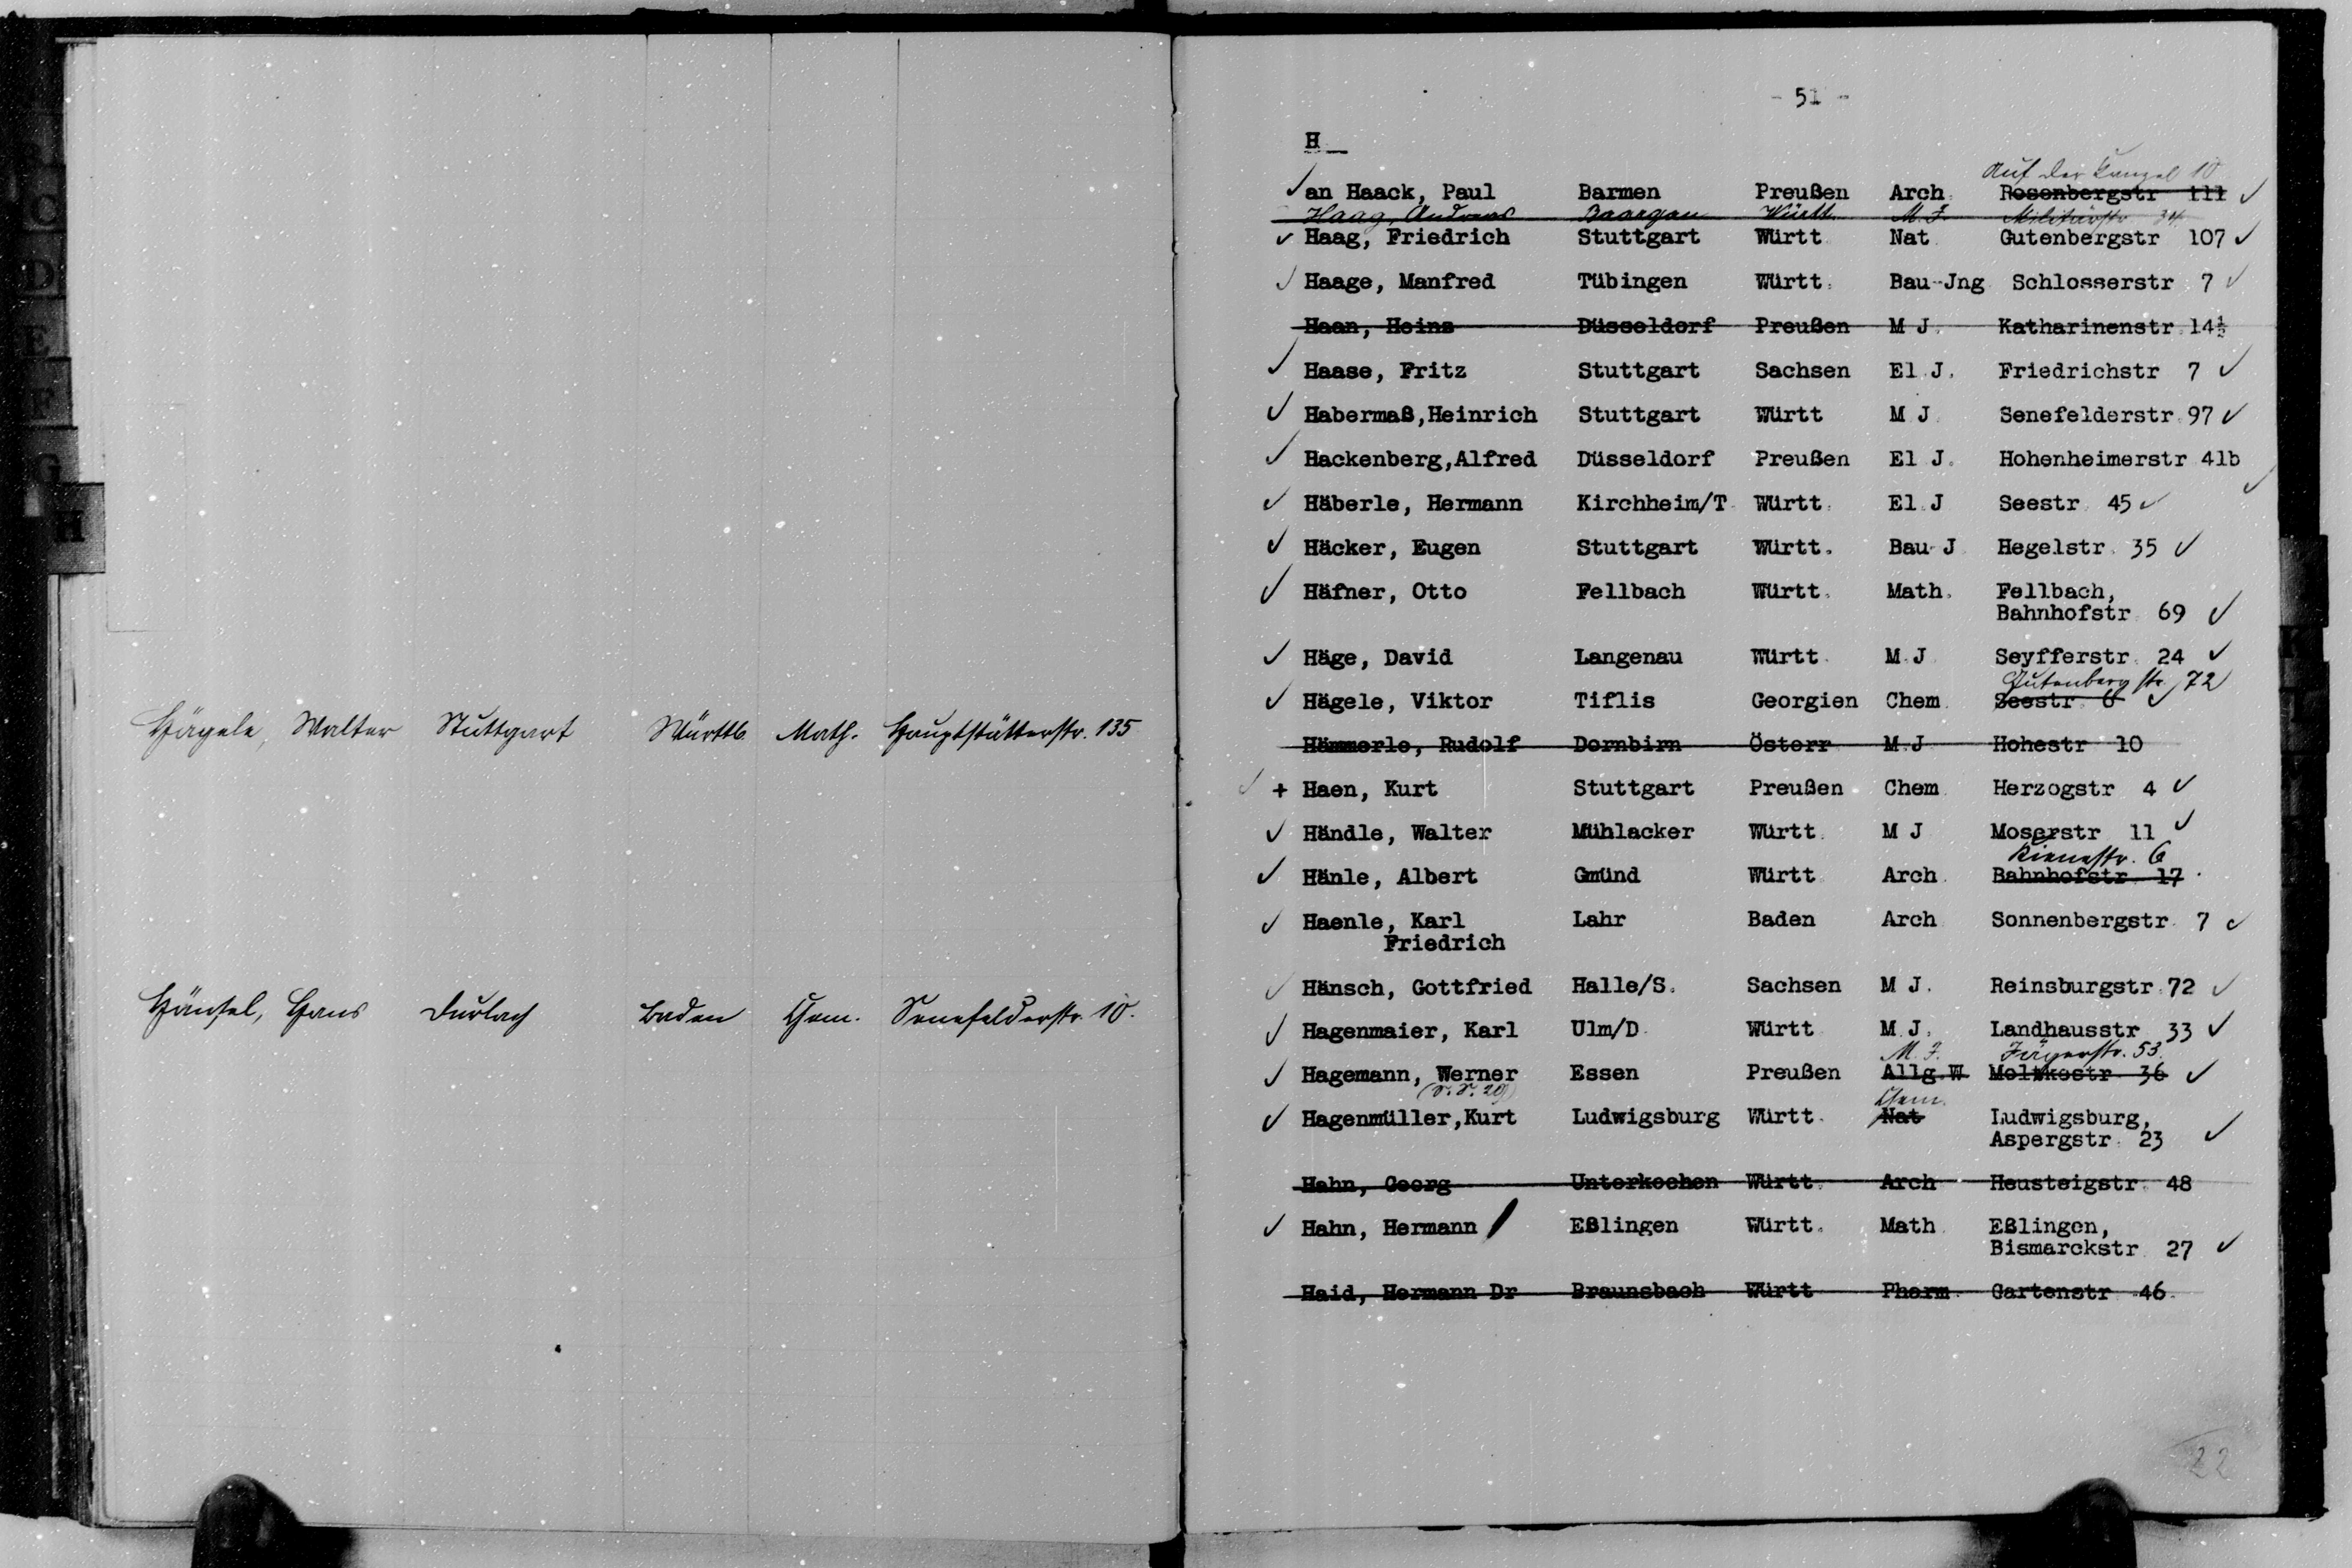 Hägele, Walter Stuttgart Württb. Math. Hauptstätterstr. 135
Hänsel, Hans Durlach Baden Chem. Senefelderstr. 10.
- 51 -
H
Auf der Kanzel 10
✓ an Haack, Paul Barmen Preußen Arch. Rosenbergstr 111 ✓
Haag, Andreas Württ. M.J. Militärstr. 34
✓ Haag, Friedrich Stuttgart Württ Nat Gutenbergstr 107 ✓
✓ Haage, Manfred Tübingen Württ. Bau-Jng Schlosserstr 7 ✓
Haan, Heinz Düsseldorf Preußen M J. Katharinenstr. 14½
✓ Haase, Fritz Stuttgart Sachsen El.J. Friedrichstr 7 ✓
✓ Habermaß,Heinrich Stuttgart Württ M J Senefelderstr.97 ✓
✓ Hackenberg,Alfred Düsseldorf Preußen El J. Hohenheimerstr 41b ✓
✓ Häberle, Hermann Kirchheim/T. Württ. El.J Seestr. 45 ✓
✓ Häcker, Eugen Stuttgart Württ. Bau-J Hegelstr. 35 ✓
✓ Häfner, Otto Fellbach Württ. Math. Fellbach,
Bahnhofstr. 69 ✓
✓ Häge, David Langenau Württ. M.J Seyfferstr. 24 ✓
Gutenbergstr. 72
✓ Hägele, Viktor Tiflis Georgien Chem. Seestr. 6 ✓
Hämmerle, Rudolf Dornbirn Österr M.J Hohestr 10
✓ + Haen, Kurt Stuttgart Preußen Chem Herzogstr 4 ✓
✓ Händle, Walter Mühlacker Württ. M J Moserstr 11 ✓
Kienestr. 6
✓ Hänle, Albert Gmünd Württ Arch. Bahnhofstr. 17
✓ Haenle, Karl Lahr Baden Arch Sonnenbergstr. 7 ✓
Friedrich
✓ Hänsch, Gottfried Halle/S. Sachsen M J. Reinsburgstr.72 ✓
✓ Hagenmaier, Karl Ulm/D. Württ M.J. Landhausstr 33 ✓
M.J. Jägerstr. 53.
✓ Hagemann, Werner Essen Preußen Allg.W. Moltkestr 36 ✓
(S.S. 29) Chem.
✓ Hagenmüller,Kurt Ludwigsburg Württ. Nat Ludwigsburg,
Aspergstr. 23 ✓
Hahn, Georg Unterkochen Württ. Arch Heusteigstr. 48
✓ Hahn, Hermann / Eßlingen Württ. Math Eßlingen,
Bismarckstr. 27 ✓
Haid, Hermann Dr Braunsbach Württ Pharm. Gartenstr 46.
22
C
D
E
F
G
H
K